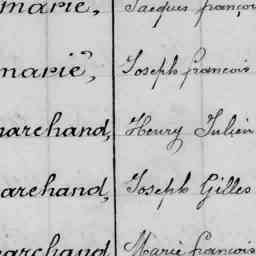 marie, Jacques françoi
marie, Joseph francois
marchand, Henry Julien
marchand, Joseph Gilles
marchand Marie francois